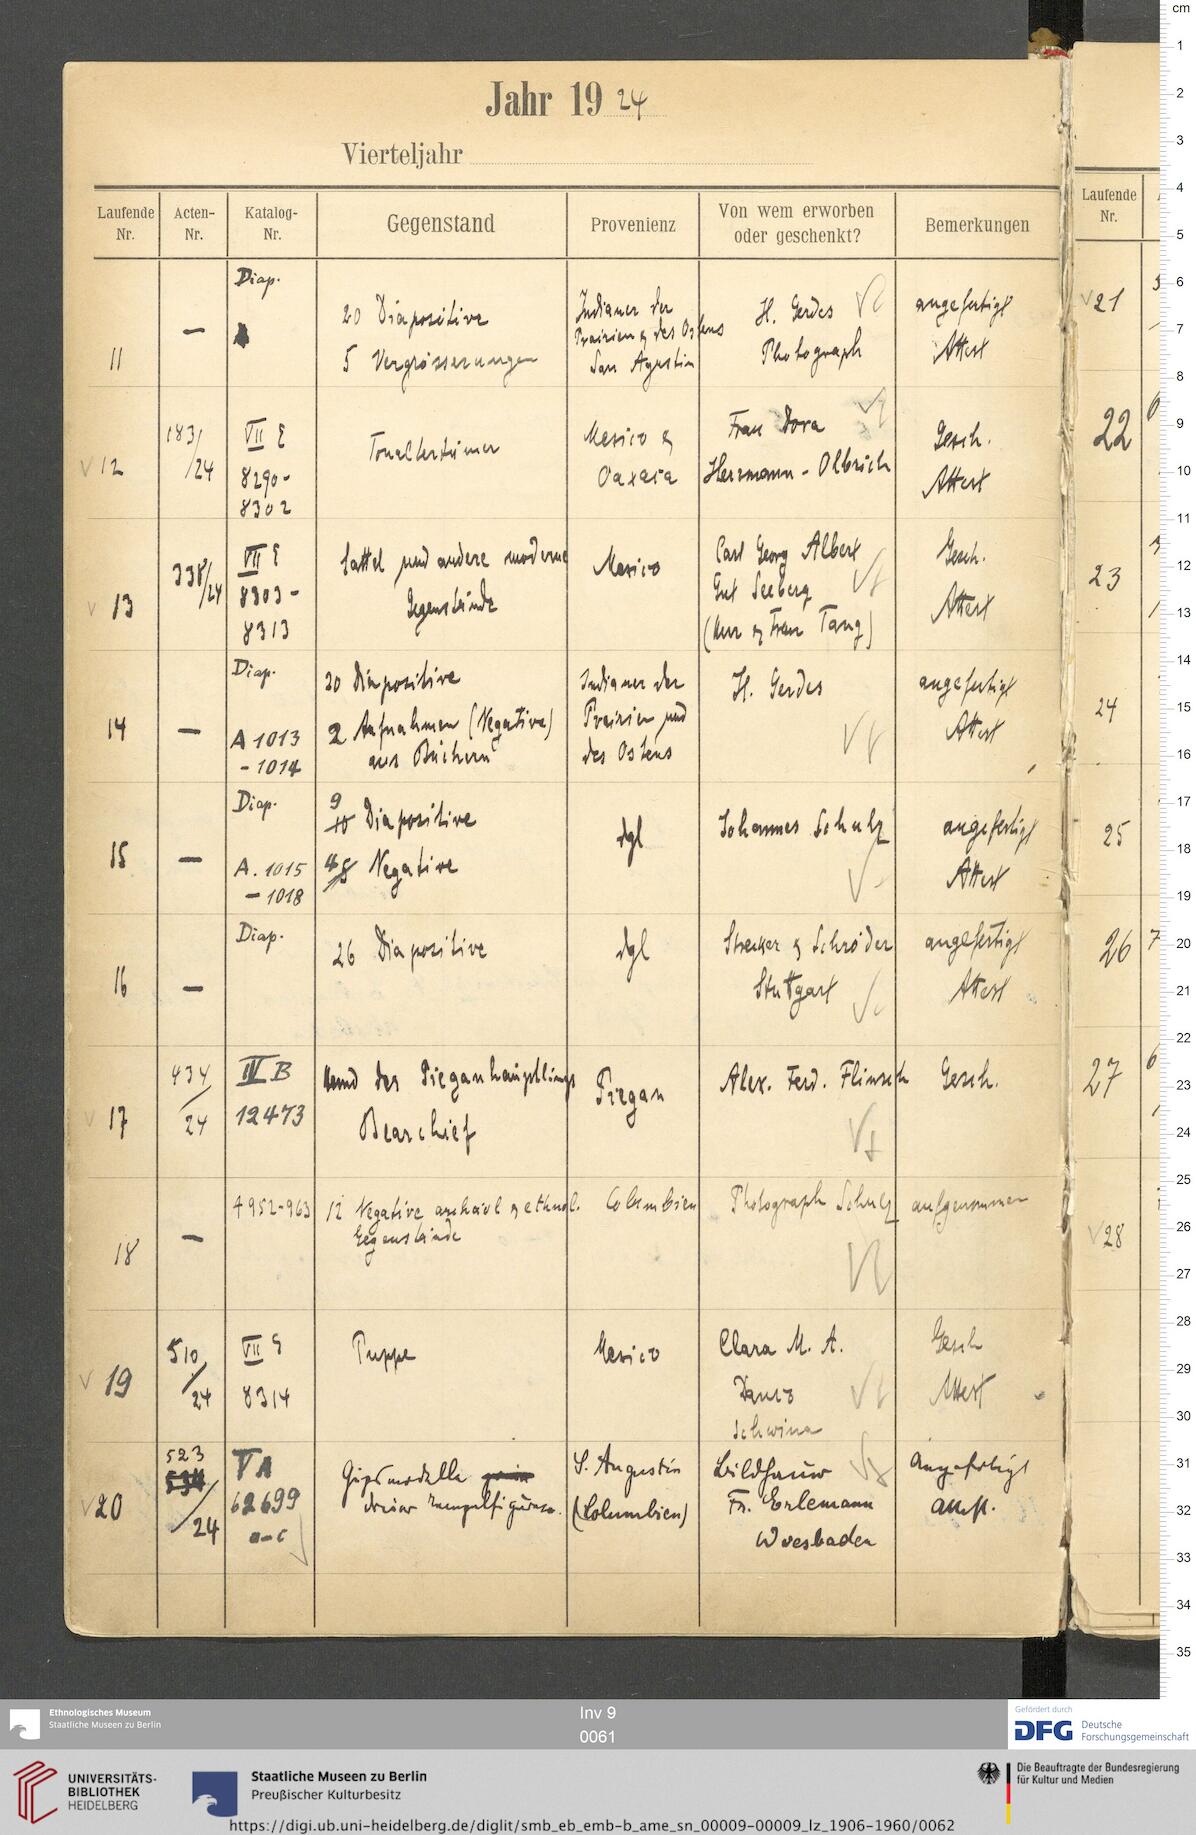 Jahr 19 24
Vierteljahr
Laufende Nr.
Acten-Nr.
Katalog-Nr.
Gegenstand
Provenienz
Von wem erworben oder geschenkt?
Bemerkungen
11
—
Diap.
20 Diapositive
5 Vergrösserungen
Indianer der
Prairien & des Ostens
San Agustin
H. Gerdes
Photograph
angefertigt
Attest
12
183/24
VII E
8290-
8302
Tonaltertümer
Mexico &
Oaxaca
Frau Dora
Herrmann-Olbrich
Gesch.
Attest
13
338/24
VII E
8303-
8313
Sattel und andere moderne
Gegenstände
Mexico
Carl Georg Albert
Gut Seeberg
(Herr & Frau Tang)
Gesch.
Attest
14
—
Diap.
A 1013
-1014
20 Diapositive
2 Aufnahmen (Negative)
aus Büchern
Indianer der
Prairien und
des Ostens
H. Gerdes
angefertigt
Attest
15
—
Diap.
A. 1015
-1018
9
10 Diapositive
4 Negative
dgl
Johannes Schulz
angefertigt
Attest
16
—
Diap.
26 Diapositive
dgl
Strecker & Schröder
Stuttgart
angefertigt
Attest
17
434/24
IV B
12473
Hemd des Pieganhäuptlings
Bearchief
Piegan
Alex. Ferd. Flinsch
Gesch.
18
—
A 952-963
12 Negative archäol & ethnol.
Gegenstände
Columbien
Photograph Schulz
aufgenommen
19
510/24
VII E
8314
Puppe
Mexico
Clara M. A.
Schwina
Gesch
Attest
20
523
534/24
V A
62699
a-c
Gipsmodelle
dreier Tempelfiguren.
S. Augustin
(Columbien)
Bildhauer
Fr. Erlemann
Wiesbaden
Angefertigt
Attest.
Laufende Nr.
21
22
23
24
25
26
27
28
cm
1
2
3
4
5
6
7
8
9
10
11
12
13
14
15
16
17
18
19
20
21
22
23
24
25
26
27
28
29
30
31
32
33
34
35
Ethnologisches Museum
Staatliche Museen zu Berlin
Inv 9
0061
Gefördert durch
DFG Deutsche
Forschungsgemeinschaft
UNIVERSITÄTS-
BIBLIOTHEK
HEIDELBERG
Staatliche Museen zu Berlin
Preußischer Kulturbesitz
Die Beauftragte der Bundesregierung
für Kultur und Medien
https://digi.ub.uni-heidelberg.de/diglit/smb_eb_emb-b_ame_sn_00009-00009_lz_1906-1960/0062